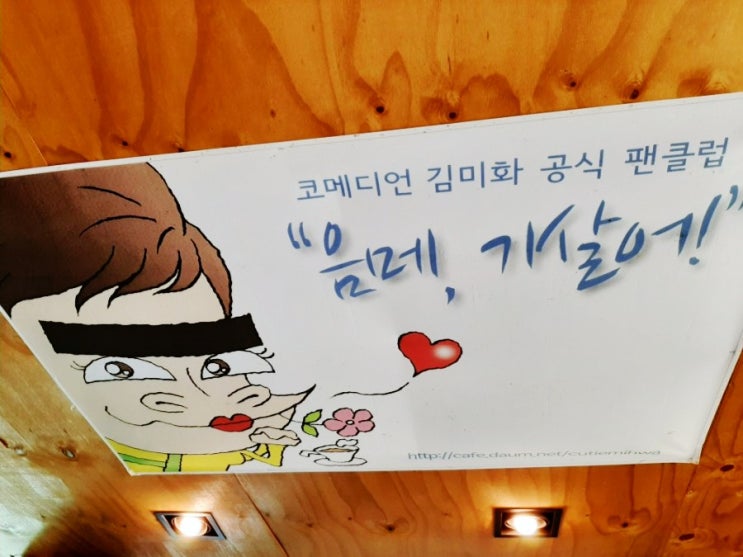 코메디언 김미화 공식 팬클럽
"음메, 기살어!"
http://cafe.daum.net/cutiemihwa